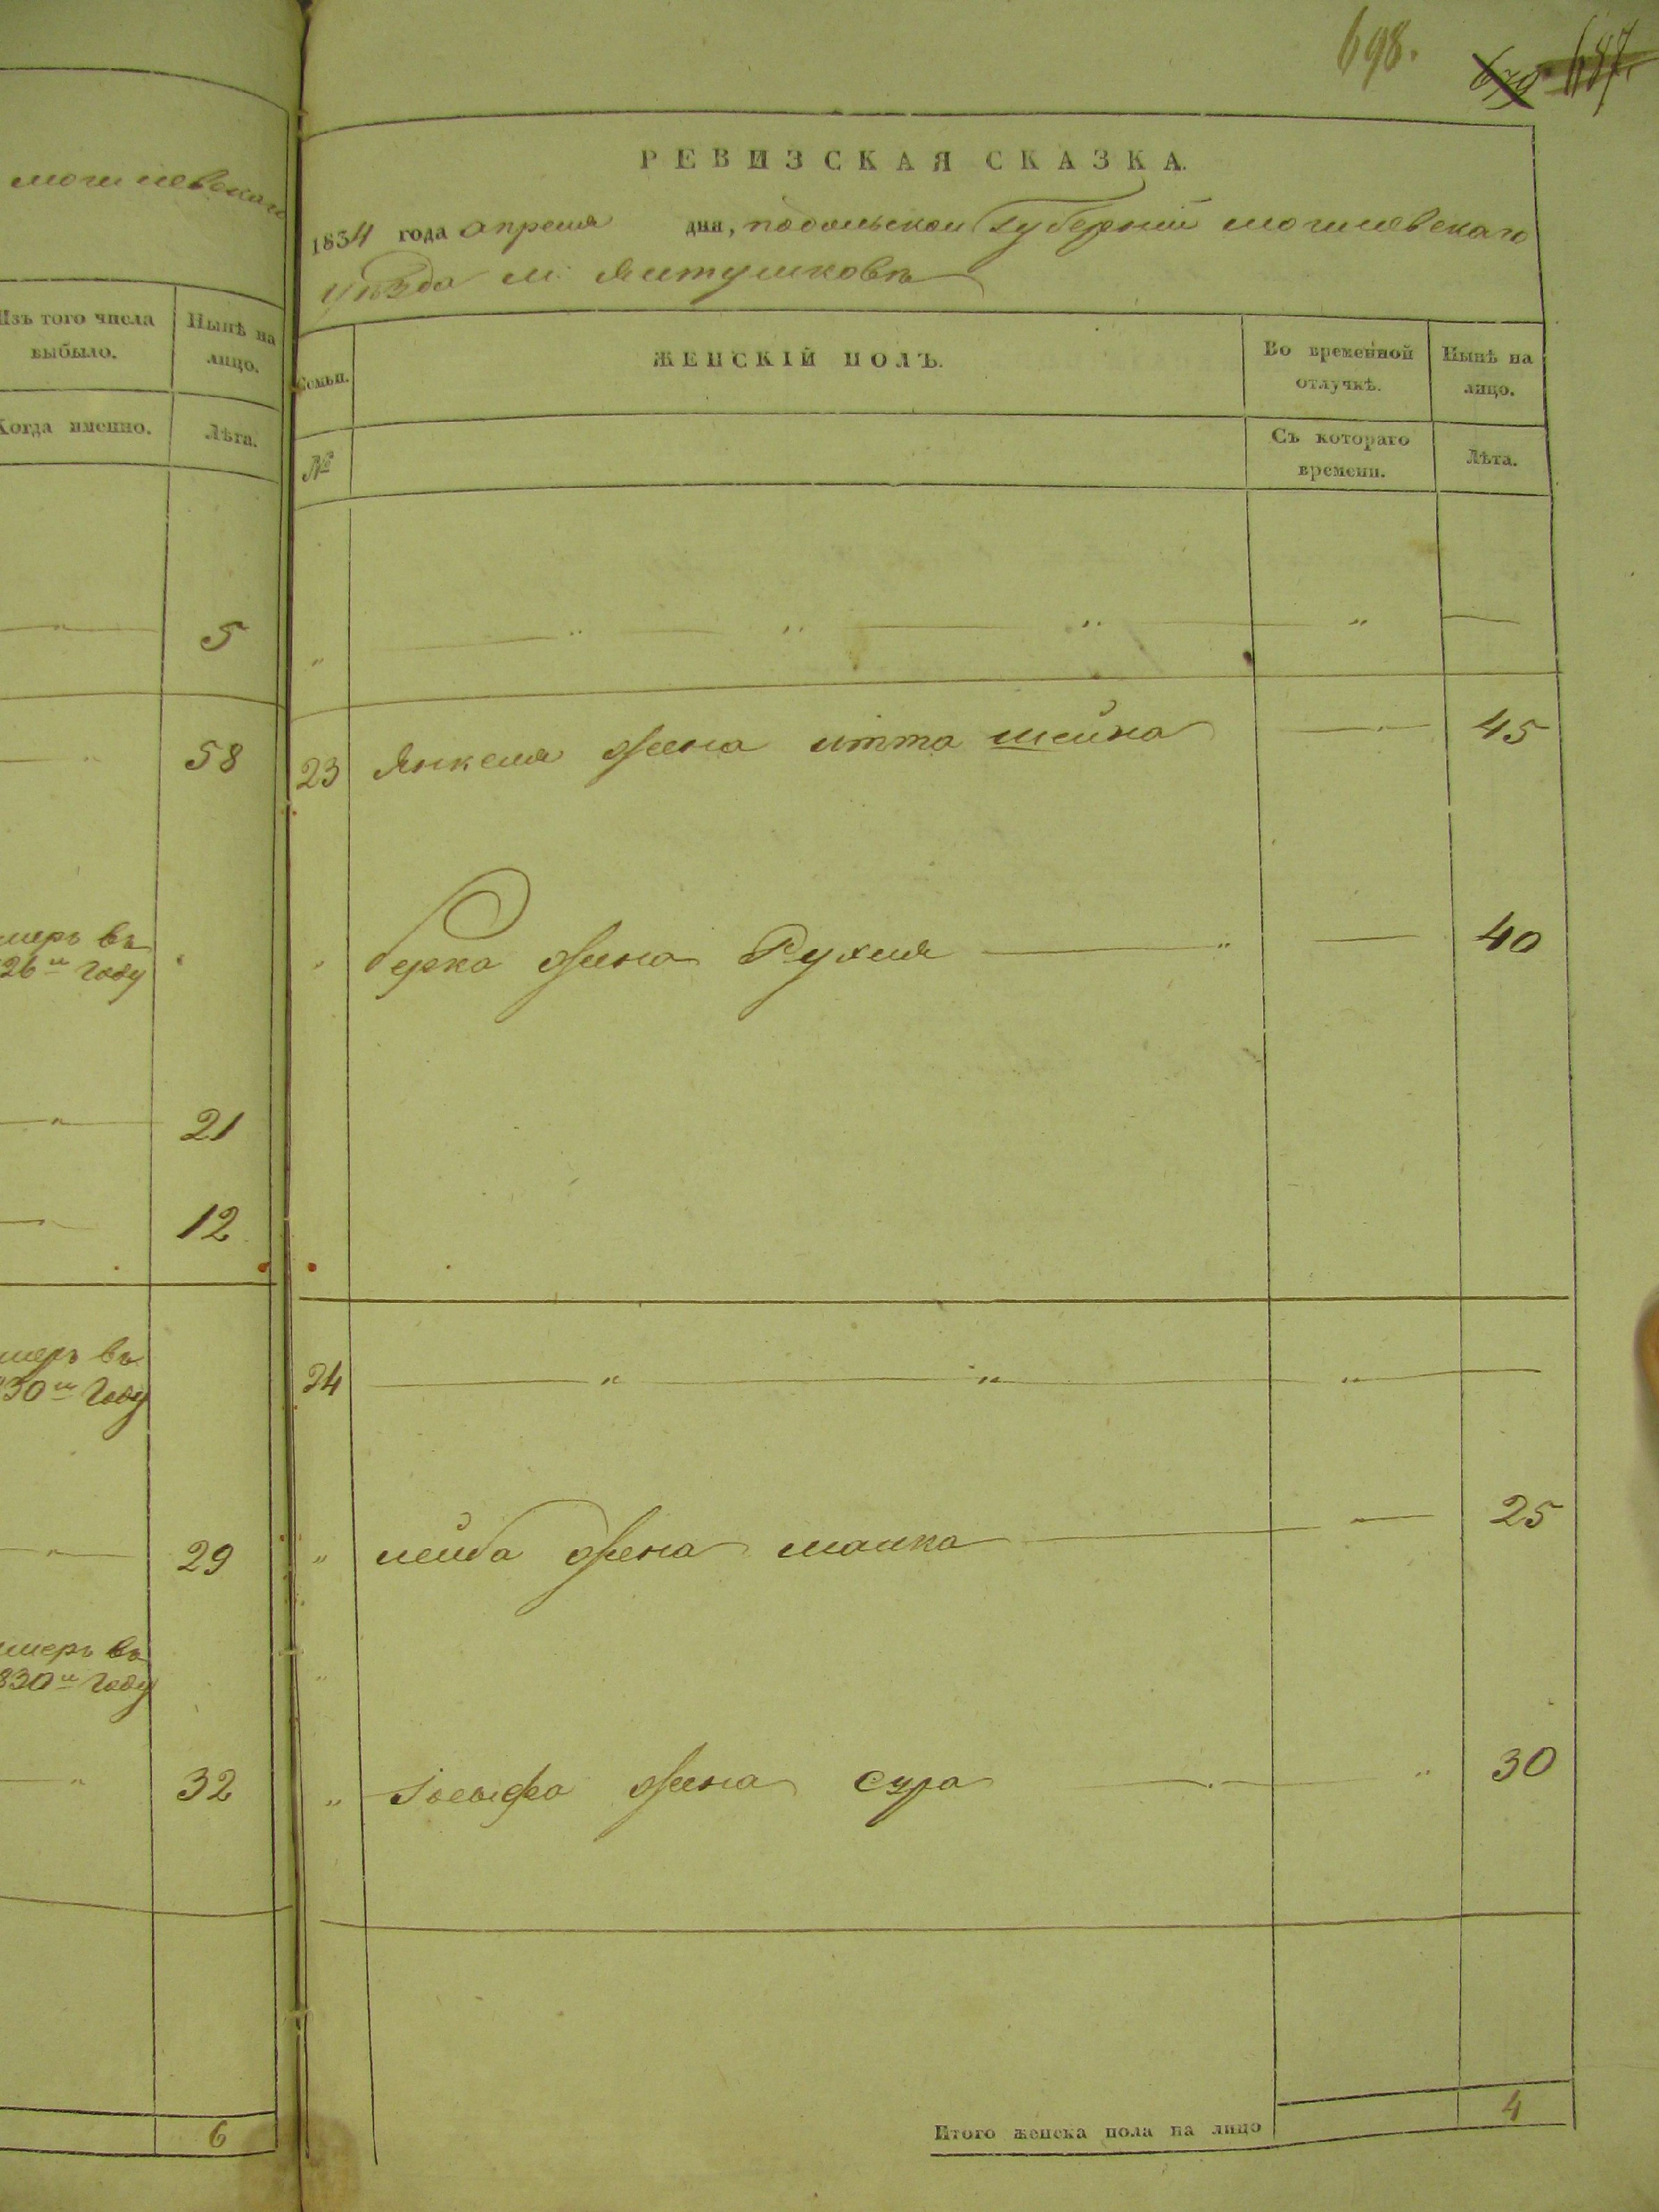 могилевскаго
Изъ того числа выбыло.
Нынѣ на лицо.
Когда именно.
Лѣта.
5
58
умеръ въ
826м году
21
12
умеръ въ
830м году
29
умеръ въ
830м году
32
6
698.
679 687.
РЕВИЗСКАЯ СКАЗКА.
1834 года апреля дня, подольской губерніи могилевскаго
уѣзда м. Ялтушковѣ
Семьи.
ЖЕНСКІЙ ПОЛЪ.
Во временной отлучкѣ.
Нынѣ на лицо.
№
Съ котораго времени.
Лѣта.
23 Янкеля жена итта шейна 45
берка жена Рухля 40
24
лейба жена малка 25
Іосифа жена сура 30
Итого женска пола на лицо 4